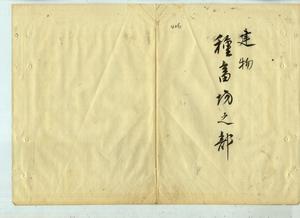 建物
種畜場之部